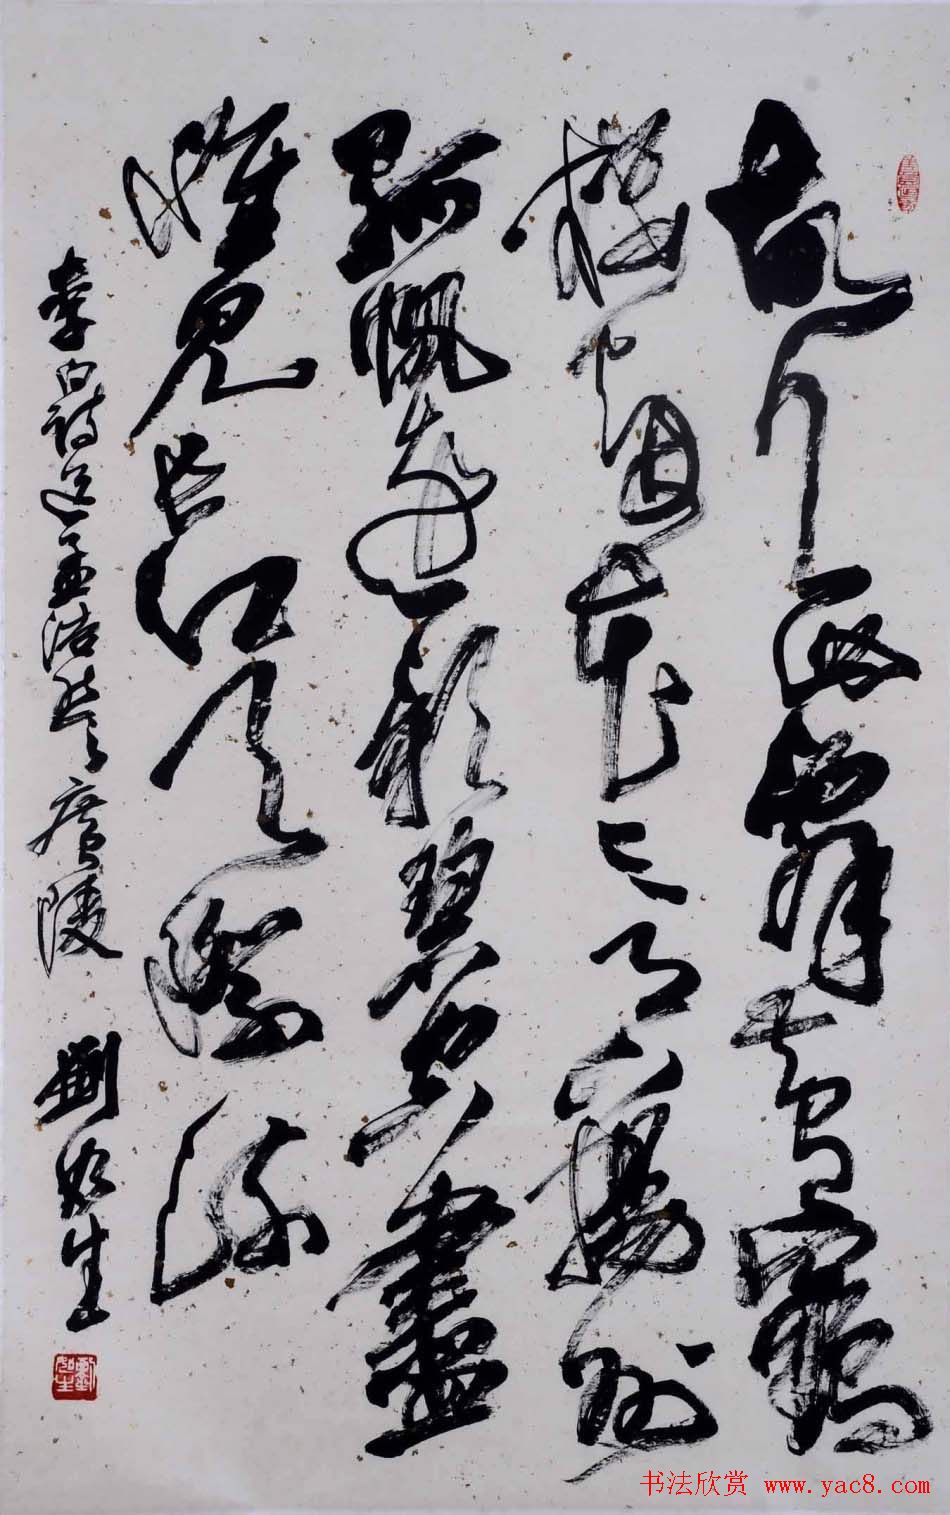 故人西辭黄鶴
樓烟花三月下揚州
孤帆遠影碧空盡
惟見長江天際流
李白詩送孟浩然之廣陵 劉如生
劉如生
书法欣赏 www.yac8.com